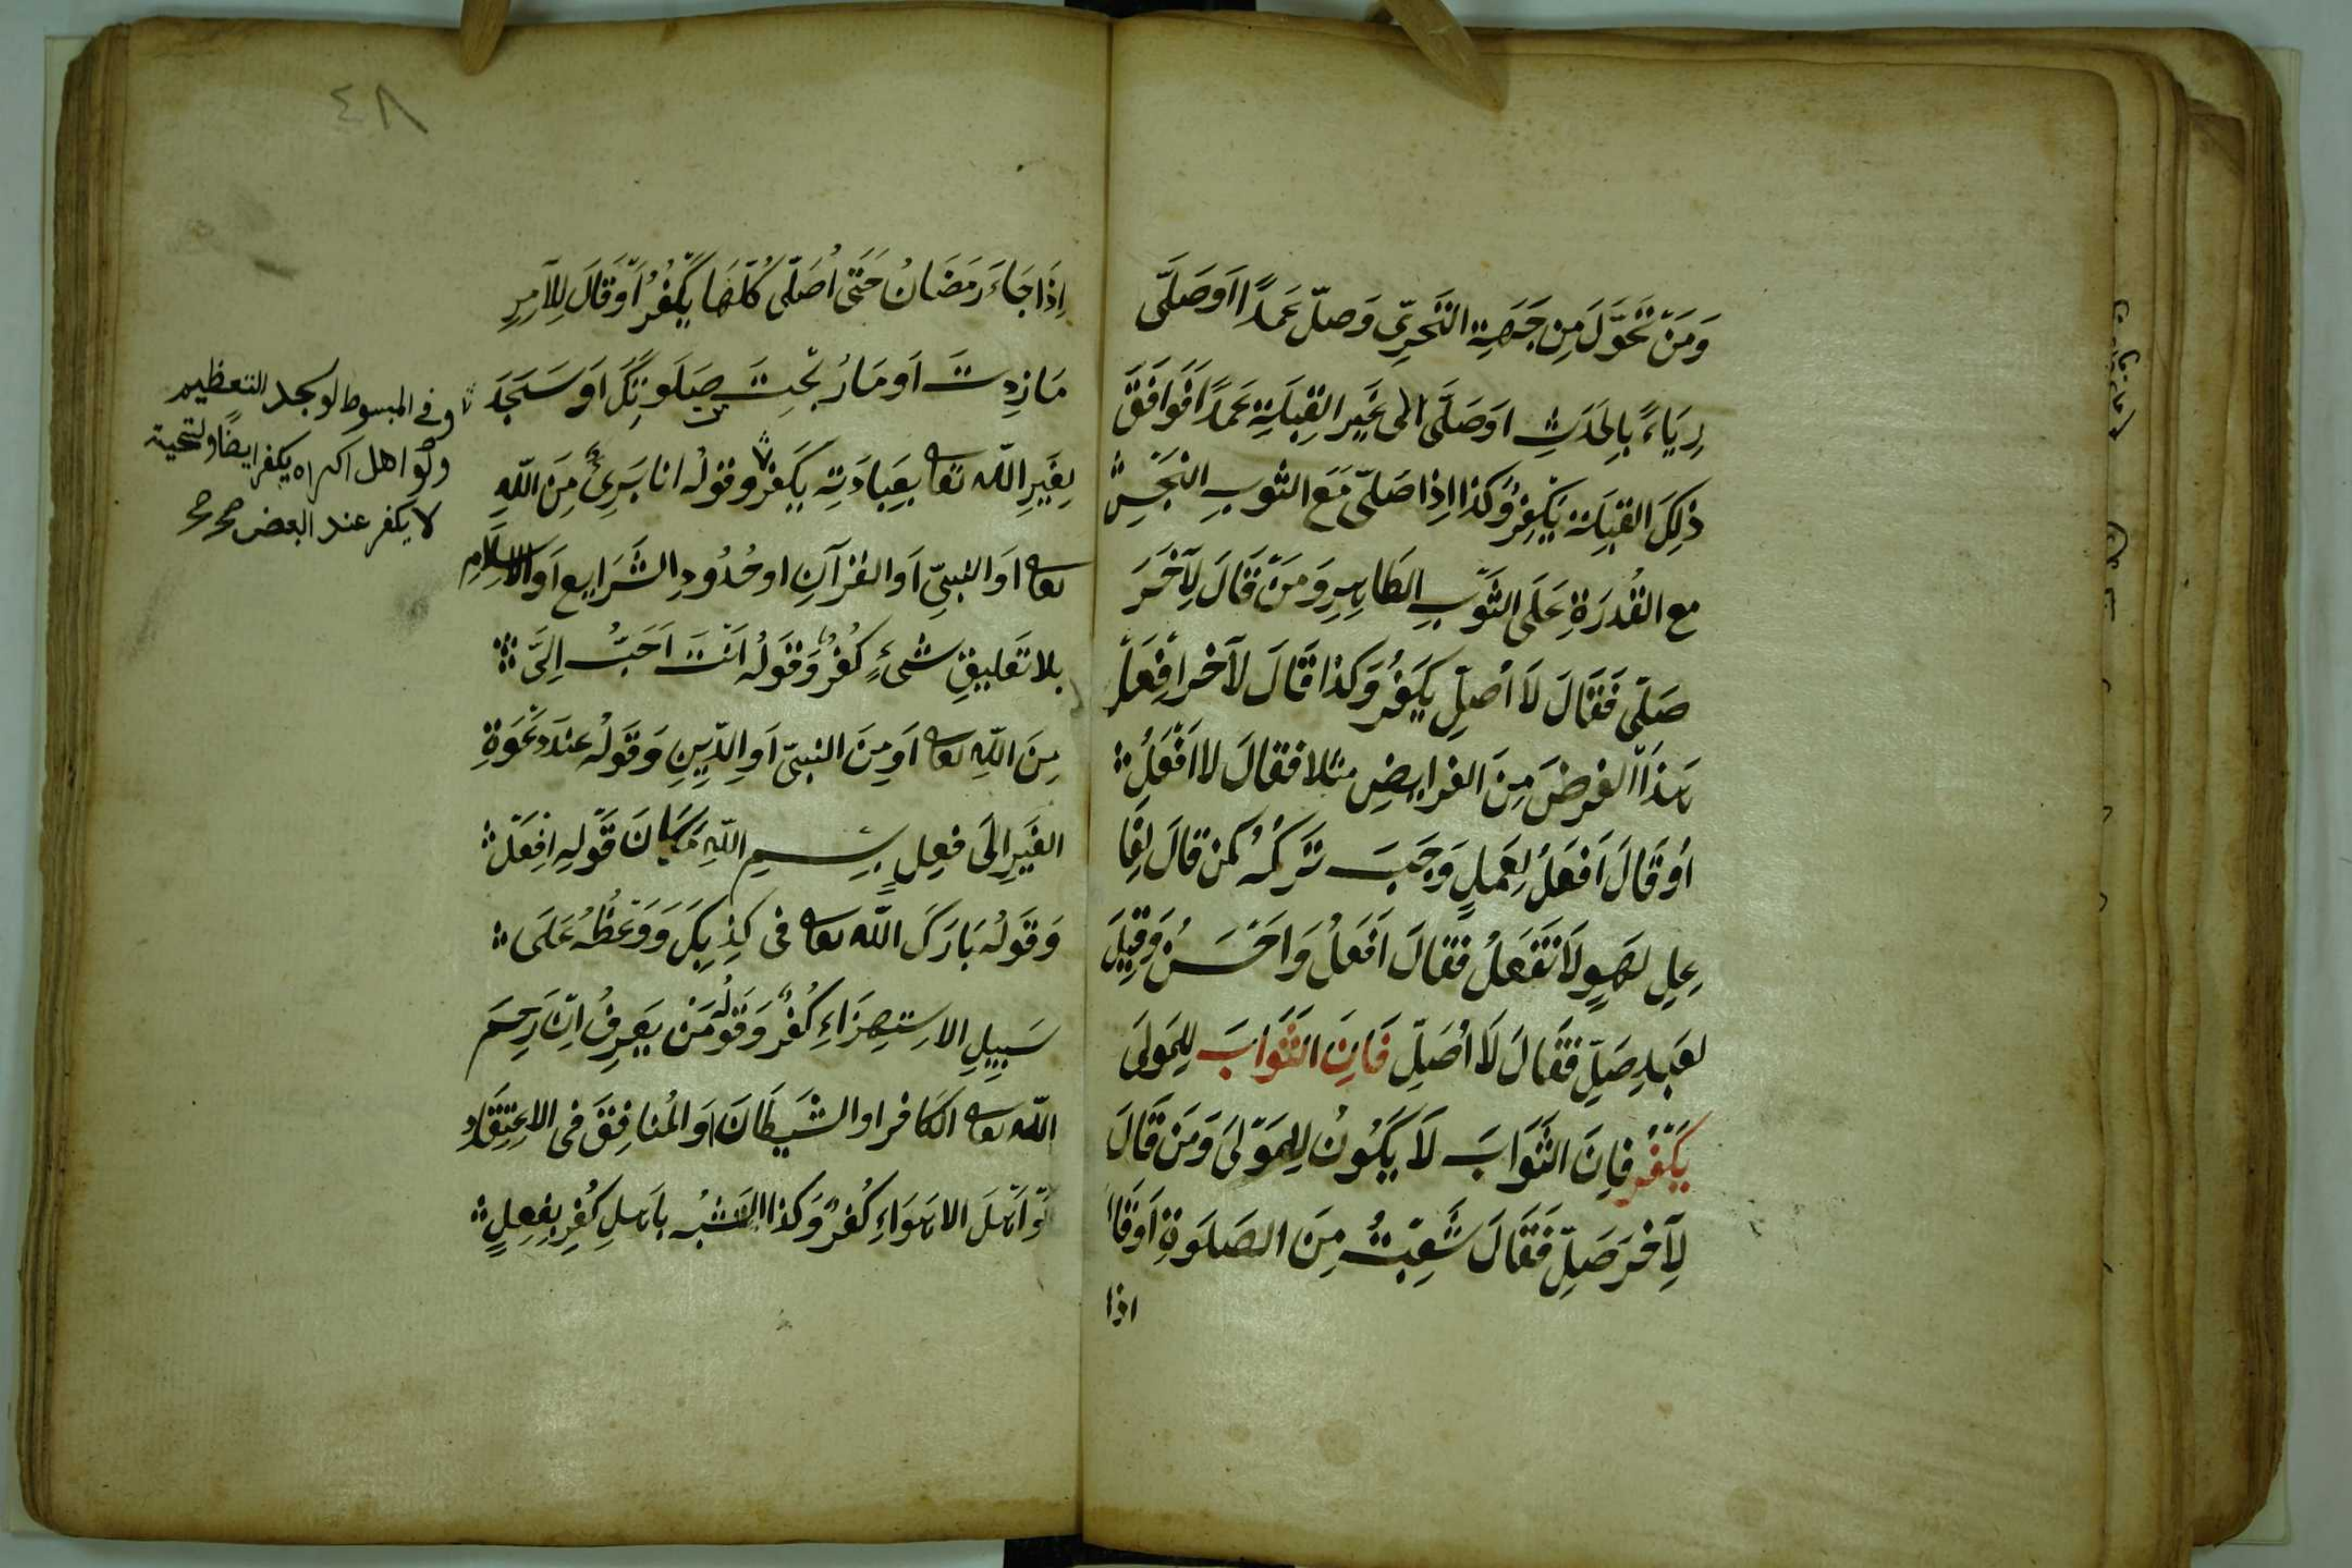 وَمَنْ تَحَوَّلَ مِن جَهَةِ التَّحَرِّي وَصلّ عَمدًا اَوصَلَّى
رِيَاءً بِالحَدَثِ اوَصَلَّى الى غَيرِ القِبلَةِ عَمدًا فَوَافَقَ
ذلِكَ القِبلَة يَكْفرُ وكذا اِذا صَلَّى مَعَ الثوبِ النَجَسِ
مع القُدرَةِ عَلَى الثَّوبِ الطَاهِرِ وَمَن قَالَ لِآخَرَ
صَلّى فَقَالَ لَا اُصَلِّ يَكفر وَكذا قَالَ لآخر اِفعَل
هَذَا الفرضَ مِنَ الفرايضِ مثلا فقالَ لا اَفْعَلُ
اَو قَالَ اَفعَلُ لِعَملٍ وَجَبَ تَركُهُ كمن قالَ لِفَا
عِلِ لهوٍ لَا تَفعَلُ فقالَ اَفعَلُ وَاحَسَنُ وَقِيلَ
لعَبدٍ صَلِّ فقَالَ لَا اُصَلِّ فَاِنَ الثَوَابَ لِلمَولَى
يَكفُر فاِنَ الثَوَابَ لَا يَكُونُ لِلمَولىَ وَمَن قَالَ
لِآخرَ صَلِّ فَقَالَ شَبِعتُ مِنَ الصَلَوةِ اَوقَالَ
اذا
٤٨
اِذَا جَاءَ رَمَضَانُ حَتَّى اُصَلّى كُلَّهَا يَكفُرُ اَوقَالَ لِلآمِرِ
مَا زِدتَ اَو مَا رُبْحتَ صَلَوتِكَ اَوسَجَدَ
لِغَيرِ اللّه تعا بعِبَادَتِه يَكفرُ وقولُه انا بَرِىٌ مِنَ اللّهِ
تعا اَوالنبىِّ اَوالقرآنِ اوحُدُودِ الشَرَايِعِ اَوالاِسلَامِ
بلا تَعليقِ شئٍ كُفرٌ وَقَولُه اَنتَ اَحَبُّ اِلىَّ
مِنَ اللّهِ تعا اَومِنَ النبىّ اَوِالدّينِ وَقَولُه عندَ دَعْوَةِ
الغَيرِ الىَ فِعلٍ بِسمِ اللّهِ مَكَانَ قَولِهِ اِفعَل
وَقَولُه بَارَكَ اللّه تعا فى كِذبِكَ وَوَعْظُهُ عَلَى
سَبِيلِ الاِستِهزَاءِ كُفرٌ وَقَولُه مَن يَعرِفُ اِنّ رَحِمَ
اللّه تعا الكَافر اوالشَيطَانَ اَوالمُنافِقَ فى الاعتِقَادِ
اَواَهلَ الاهوَاءِ كُفرٌ وكذا التشبُه باهلِ كُفرٍ بِفِعلٍ
وفى المبسوط لو سجد للتعظيم
ولو اهل اكراه يكفر ايضًا ولتحية
لا يكفر عند البعض صح صح